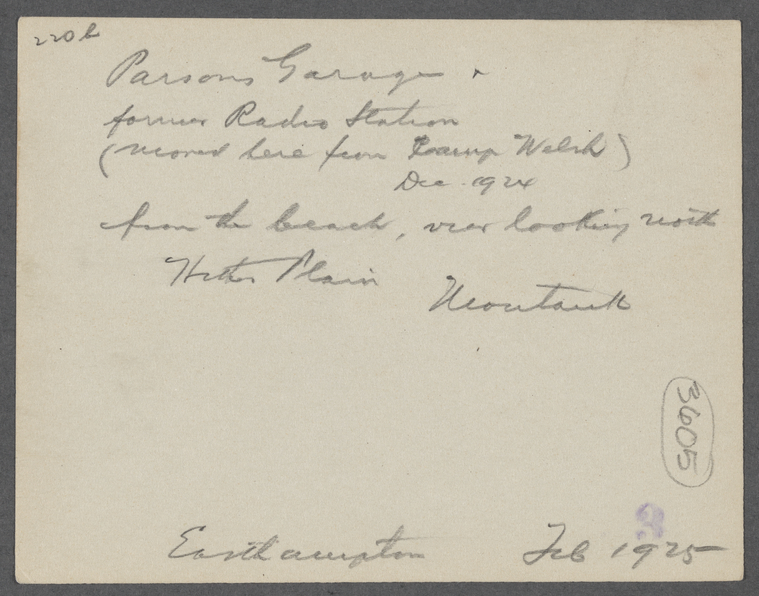 220b
Parsons Garage
former Radio Station
(moved here from Camp Welsh)
Dec. 1924
from the beach, view looking north
Hither Plain
Montauk
3605
Easthampton Feb 1925